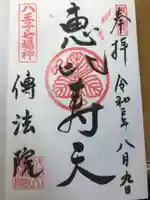 奉拝
令和
八月九日
惠比寿天
八王子七福神
傳法院